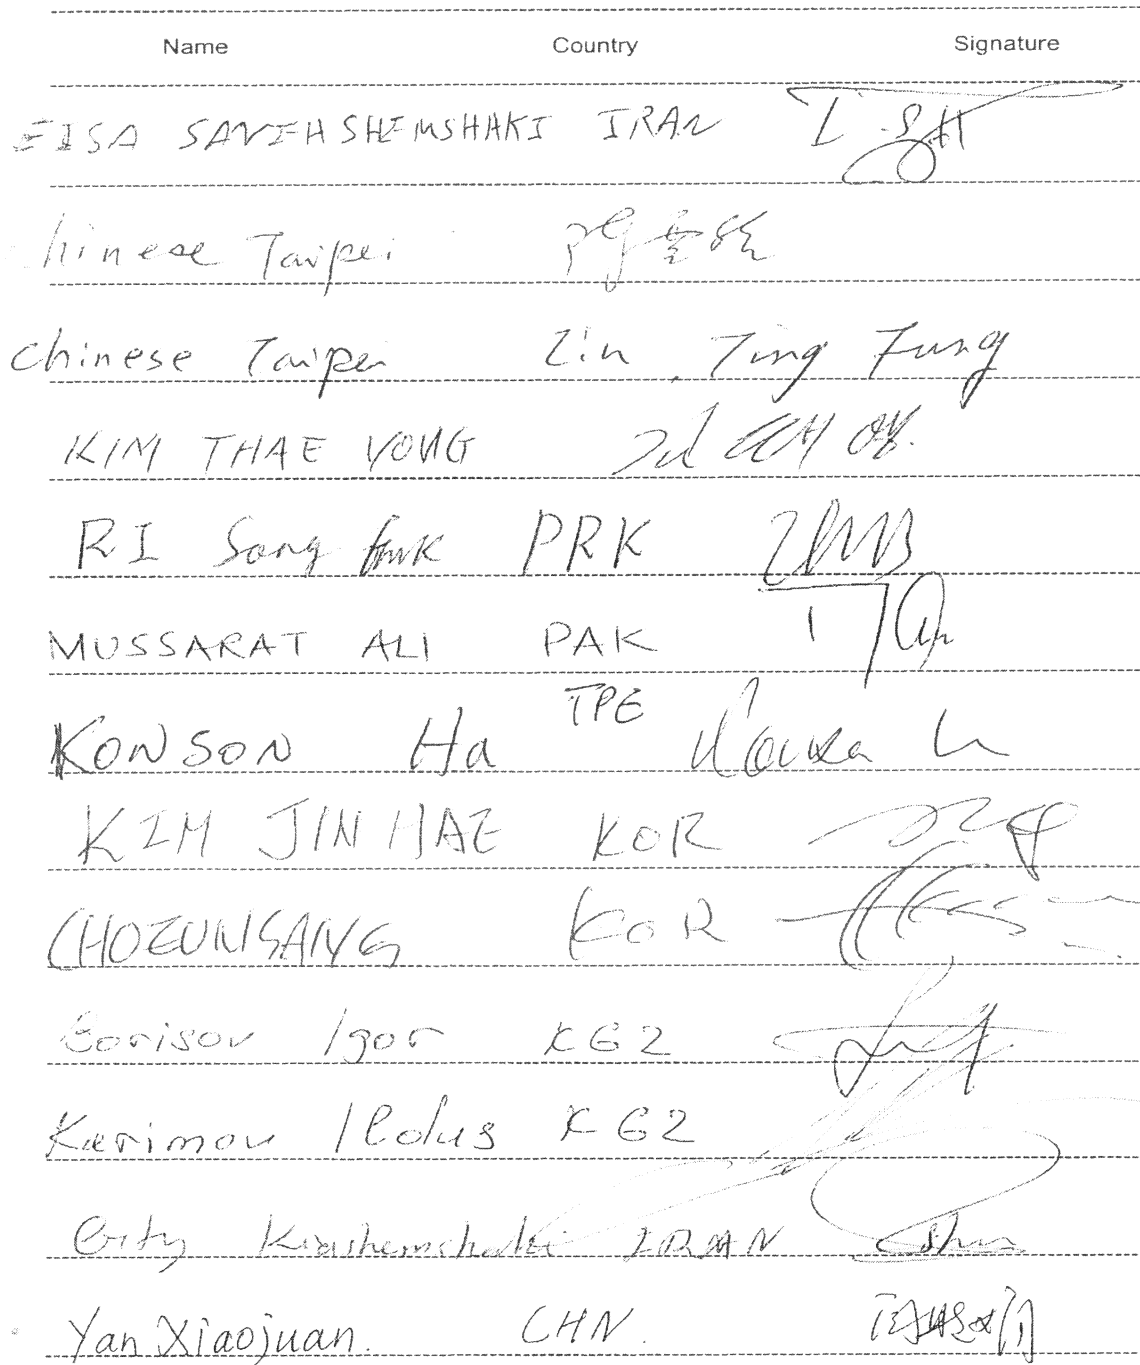 Name Country Signature
EISA SAVEHSHEMSHAKI IRAN
hinese Taipei
Chinese Taipei Lin, Ting Fung
KIM THAE YONG 김태영
RI Song PRK
MUSSARAT ALI PAK
TPE
KONSON Ha
KIM JIN HAE KOR
CHOEUNSANG KOR
Borisov Igor KGZ
Karimov Ildus KGZ
Gity Kiashemshaki IRAN
Yan Xiaojuan. CHN.